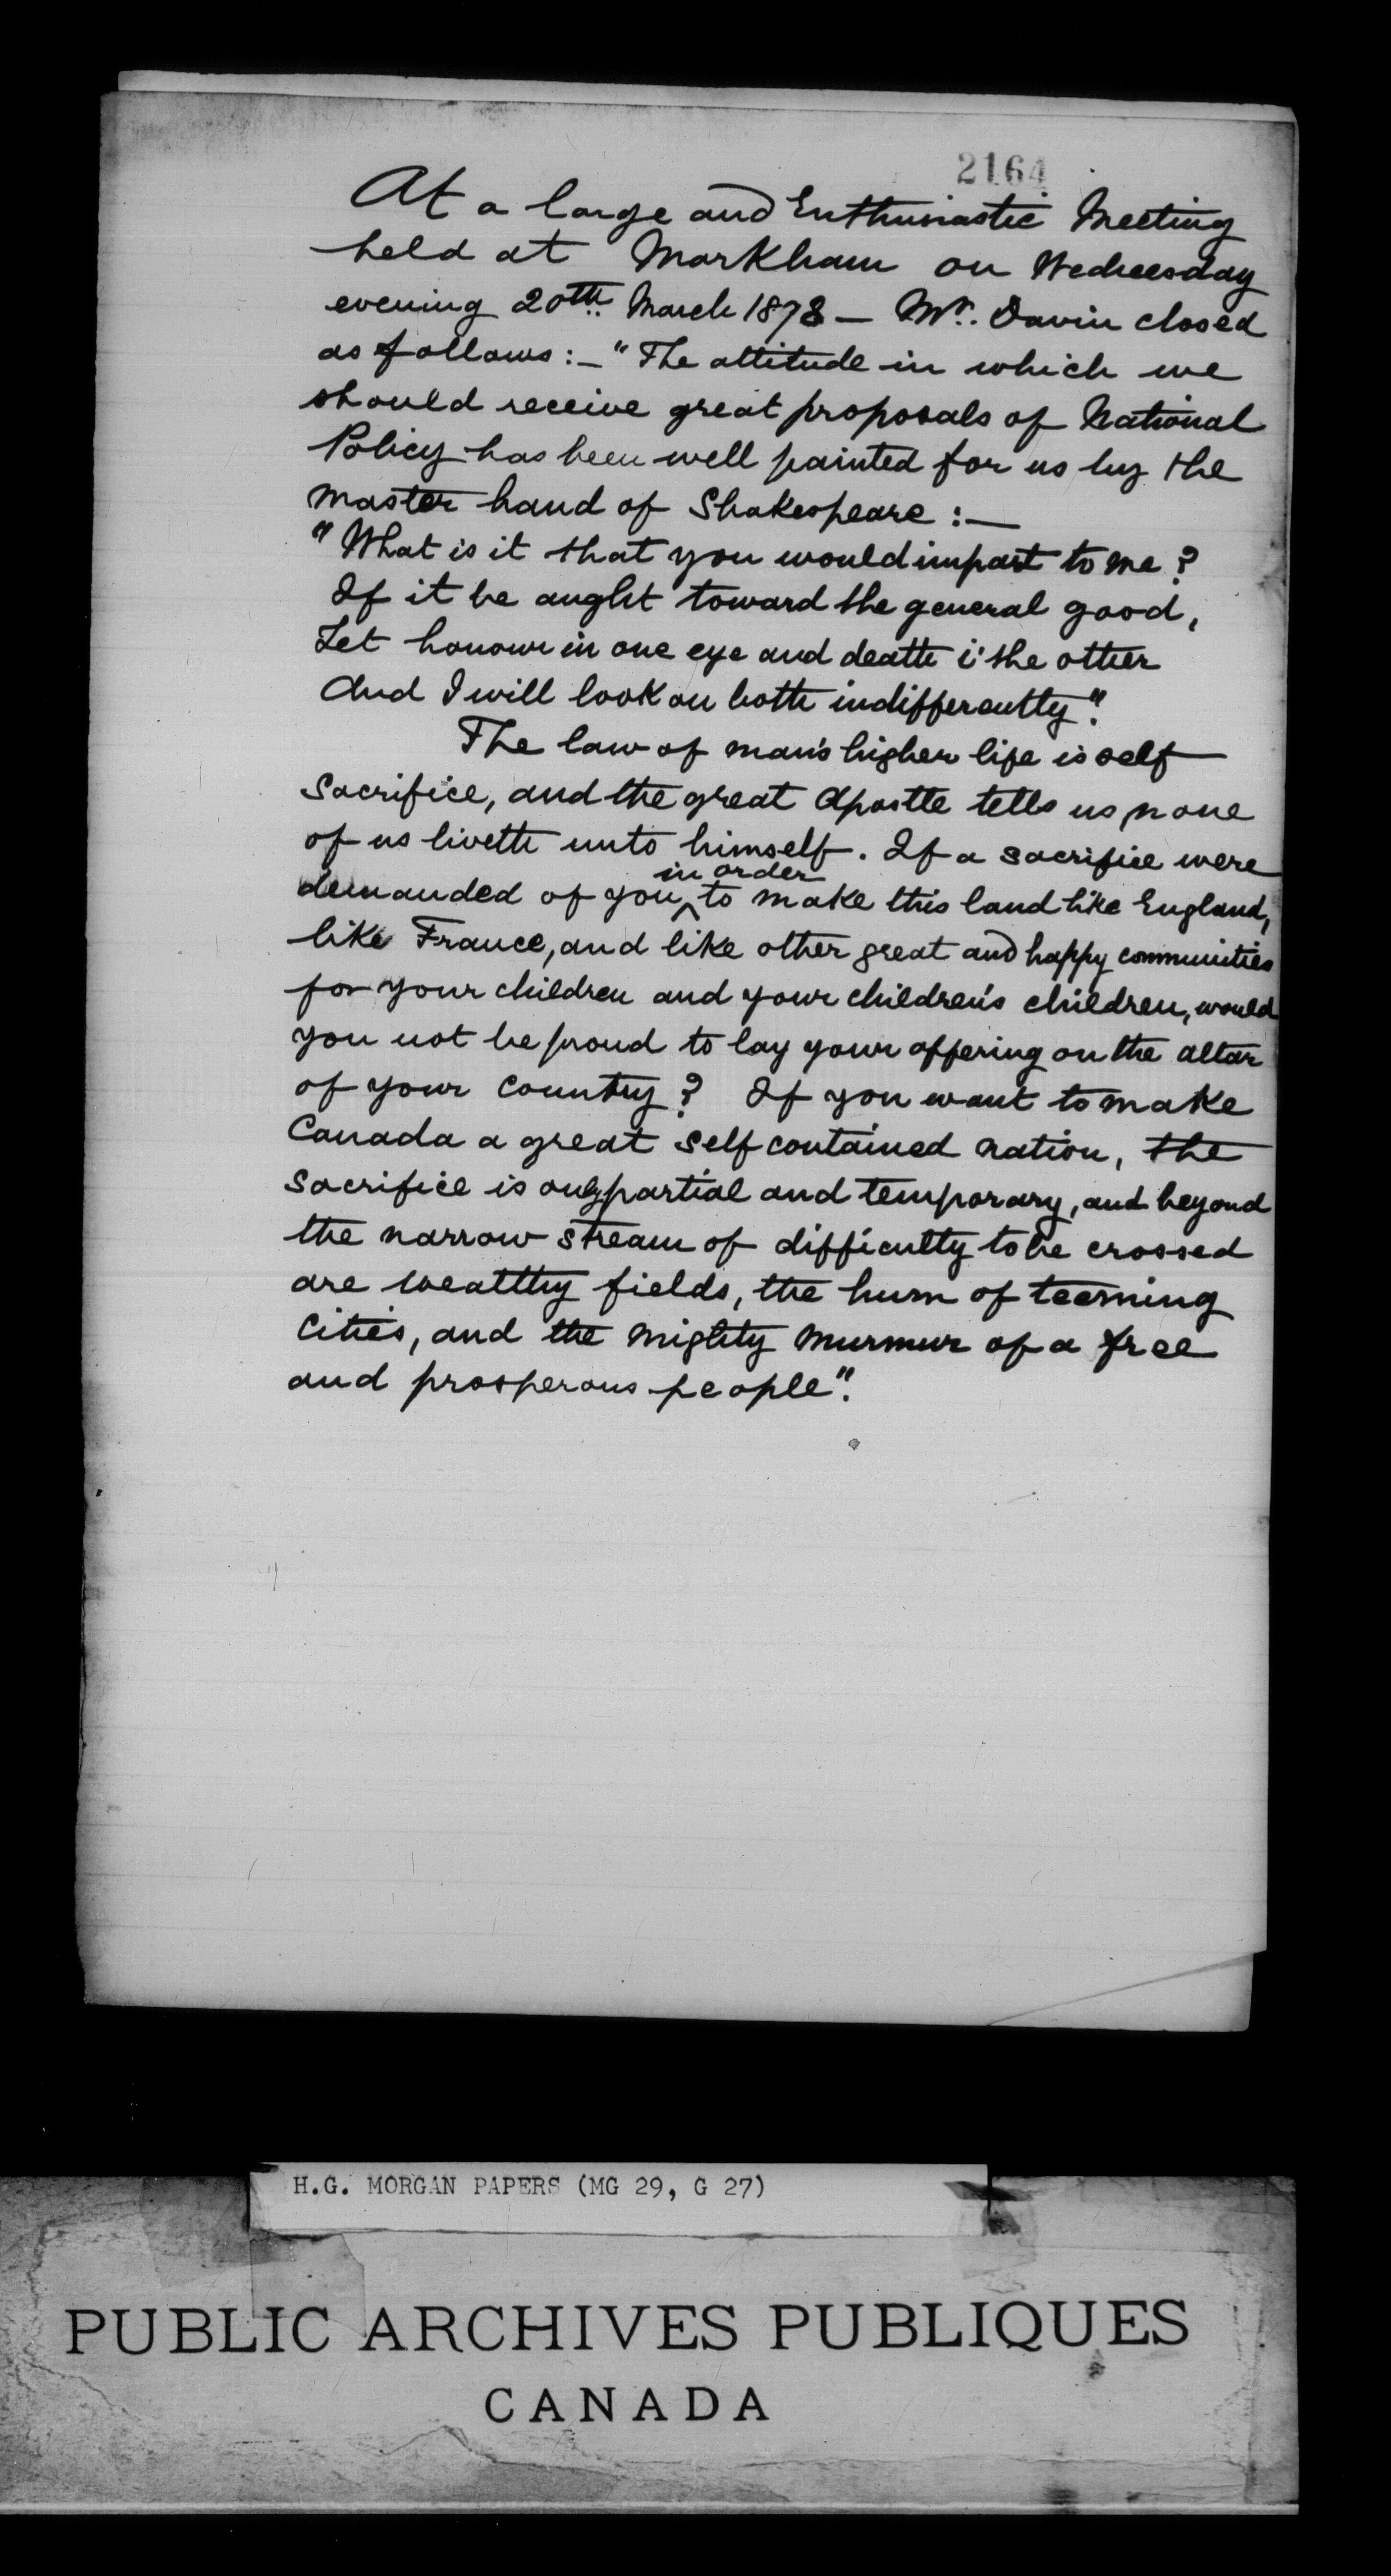 2164
At a large and Enthusiastic Meeting
held at Markham on Wednesday
evening 20th March 1878 — Mr. Davin closed
as follows: — "The attitude in which we
should receive great proposals of National
Policy has been well painted for us by the
master hand of Shakespeare : —
"What is it that you would impart to me?
If it be aught toward the general good,
Set honour in one eye and death i' the other
And I will look on both indifferently".
The law of man's higher life is self
sacrifice, and the great Apostle tells us, none
of us liveth unto himself. If a sacrifice were
in order
demanded of you ^ to make this land like England,
like France, and like other great and happy communities
for your children and your children's children, would
you not be proud to lay your offering on the altar
of your country? If you want to make
Canada a great self contained nation, the
sacrifice is only partial and temporary, and beyond
the narrow stream of difficulty to be crossed
are wealthy fields, the hum of teeming
cities, and the mighty murmur of a free
and prosperous people".
H.G. MORGAN PAPERS (MG 29, G 27)
PUBLIC ARCHIVES PUBLIQUES
CANADA